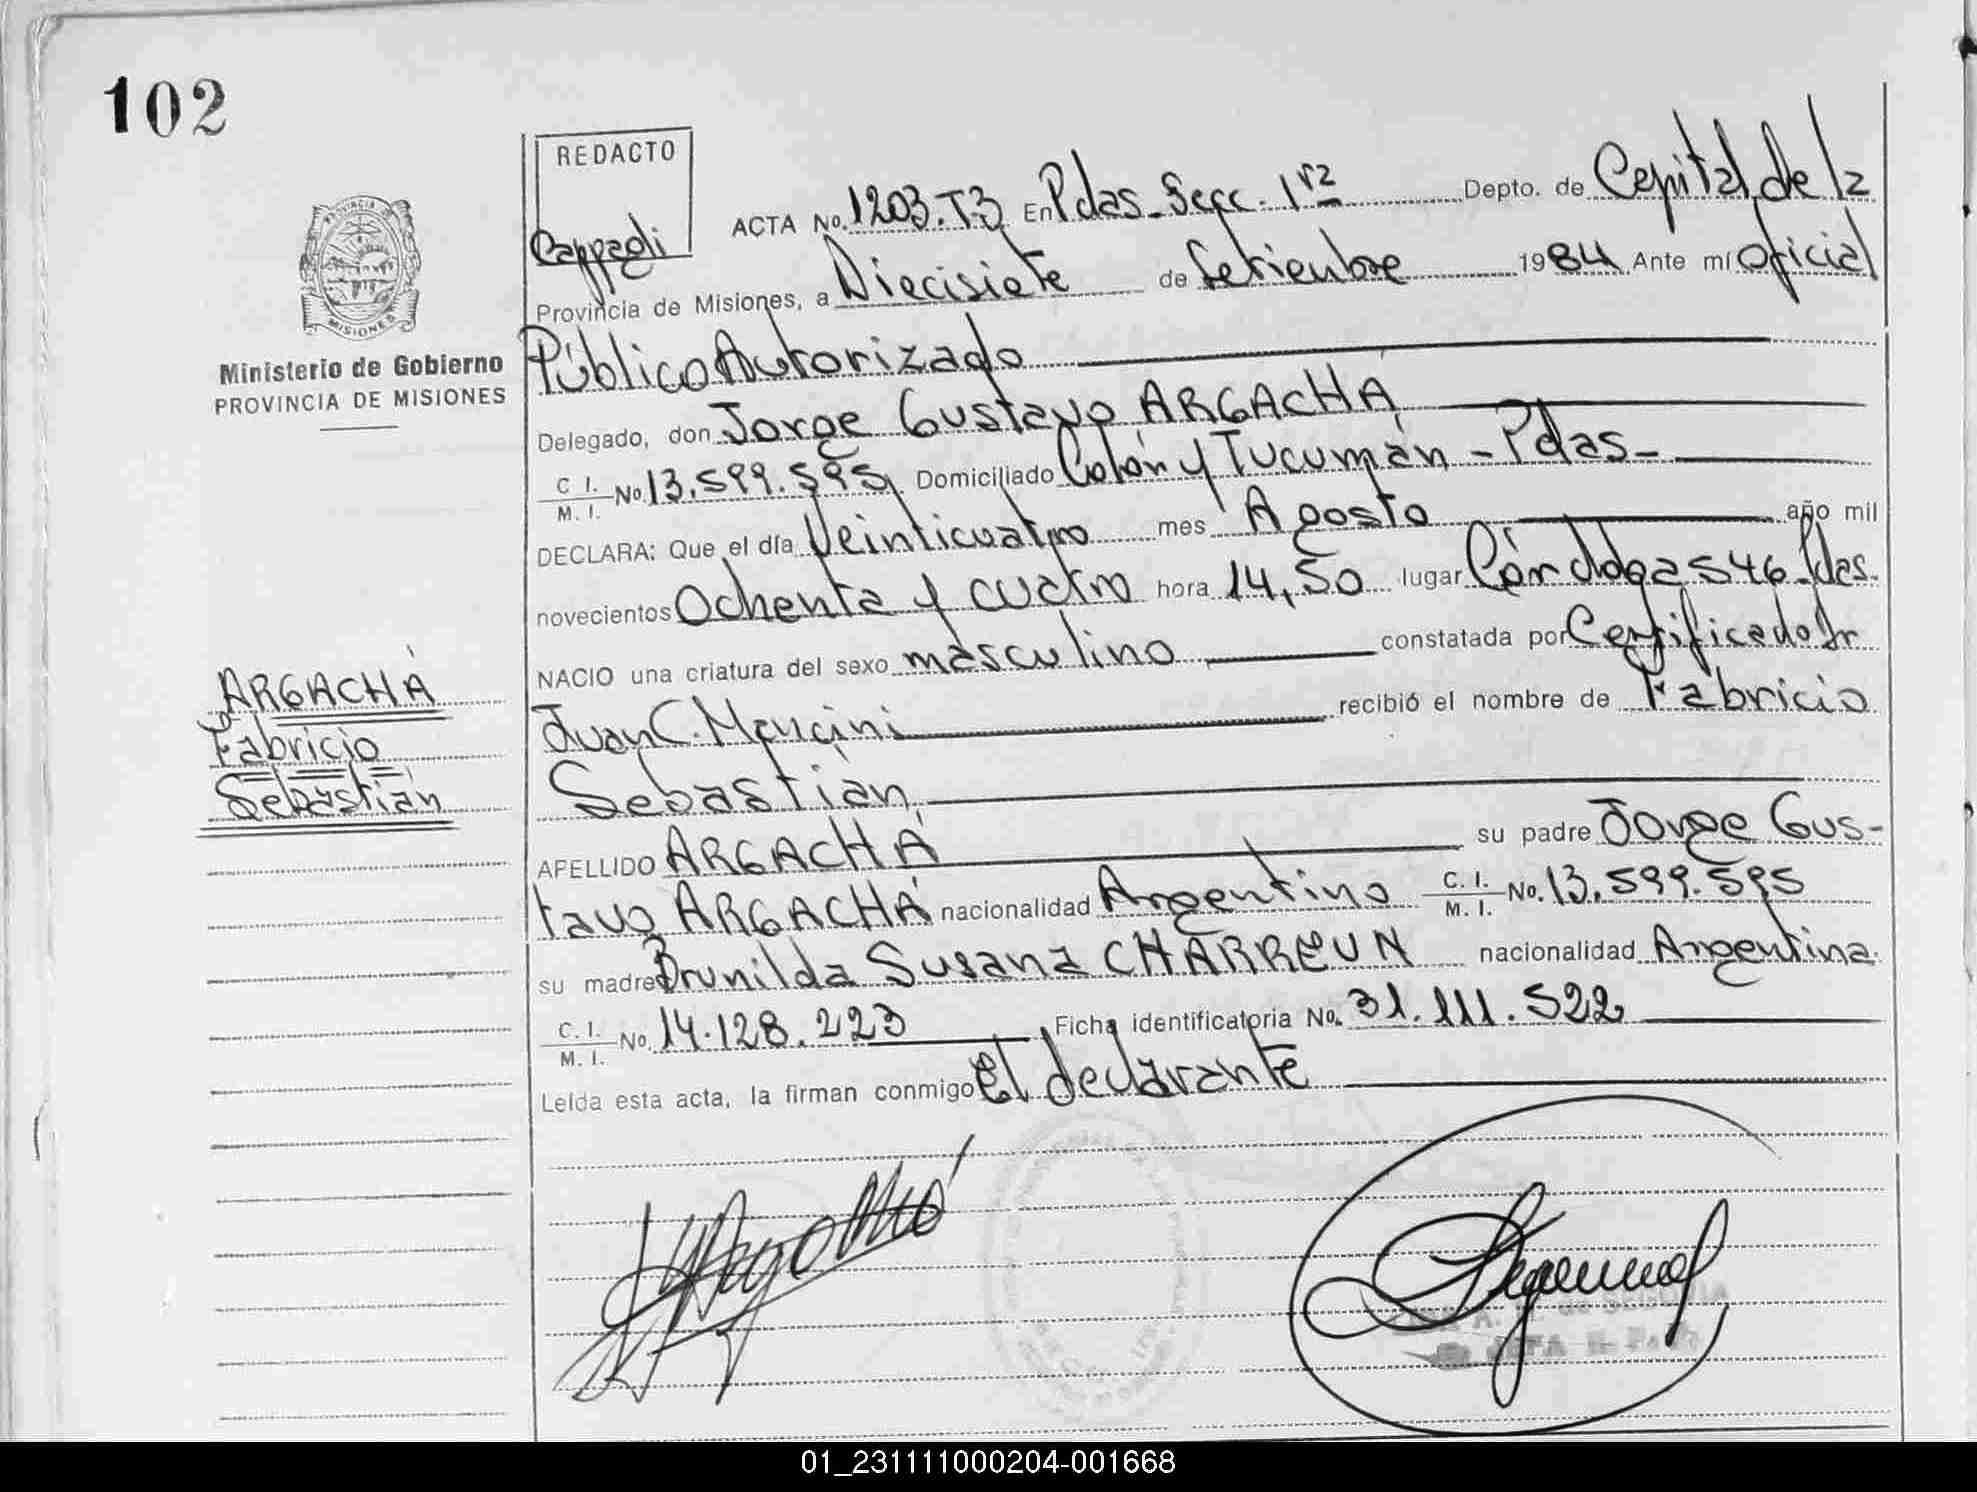 102
REDACTO
Cappagli
ACTA No. 1203. T3 En Pdas. Secc. 1ra Depto. de Capital de la
Provincia de Misiones, a Diecisiete de Setiembre 1984 Ante mí Oficial
Público Autorizado
Delegado, don Jorge Gustavo ARGACHÁ
C I. M. I. No. 13.599.595 Domiciliado Colón y Tucumán - Pdas -
DECLARA: Que el día Veinticuatro mes Agosto año mil
novecientos Ochenta y cuatro hora 14,50 lugar Córdoba 546 Pdas.
NACIO una criatura del sexo masculino constatada por Certificado Dr
Juan C. Mancini recibió el nombre de Fabricio
Sebastián
APELLIDO ARGACHÁ su padre Jorge Gus-
tavo ARGACHÁ nacionalidad Argentino C. I. M. I. No. 13.599.595
su madre Brunilda Susana CHARREUN nacionalidad Argentina.
C. I. M. I. No. 14.128.223 Ficha identificatoria No. 31.111.522
Leída esta acta, la firman conmigo el declarante
PROVINCIA DE
MISIONES
Ministerio de Gobierno
PROVINCIA DE MISIONES
ARGACHÁ
Fabricio
Sebastián
01_231111000204-001668